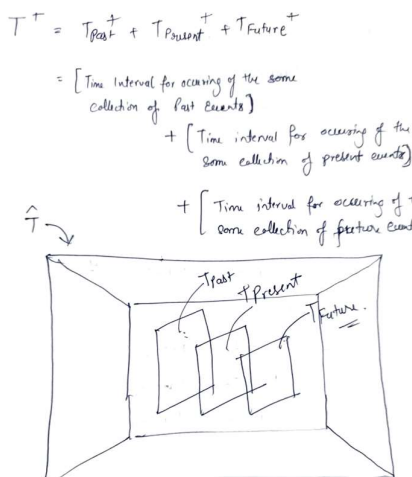 T⁺ = T Past⁺ + T Present⁺ + T Future⁺
= [Time Interval for occuring of the some
collection of Past Events]
+ [Time interval for occuring of the
some collection of present events]
+ [Time interval for occuring of
some collection of future
T̂
T Past
T Present
T Future.